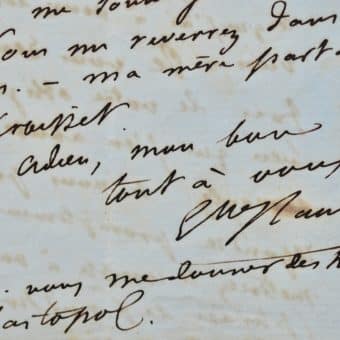 me
vous me reverrez dans
. – ma mère part
Croisset
adieu, mon bon
tout à vous
vous me donner des
astopol.